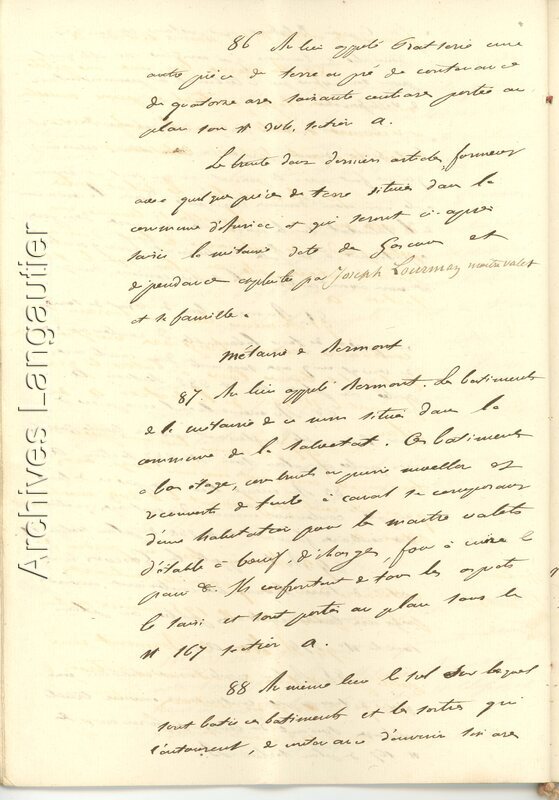 86 Au lieu appelé une
autre pièce de terre en pré de contenance
de quatorze ares soixante centiares portée au
plan son n° 346, section A.
Les trente deux derniers articles forment
avec quelques pièces de terre situées dans la
commune d'Auriac et qui seront ci-après
saisies la métairie dite de et
dépendance exploitée par Joseph Lourman maitre valet
et sa famille.
Métairie de Sermont.
87. Au lieu appelé Sermont. Les batiments
de la métairie de ce nom situés dans la
commune de la Salvetat. Ces batiments
à bas étage, construits en pierre moellon et
recouverts de tuile à canal se composent
d'une habitation pour les maitre valets
d'étable à boeufs, d'échanges, four à cuire le
pain &. Ils confrontent de tous les aspects
le saisi et sont portés au plan sous le
n° 167 section A.
88 Au même lieu le sol sur lequel
sont batis ces batiments et les sorties qui
l'entourent, de contenance d'environ six ares
Archives Langautier